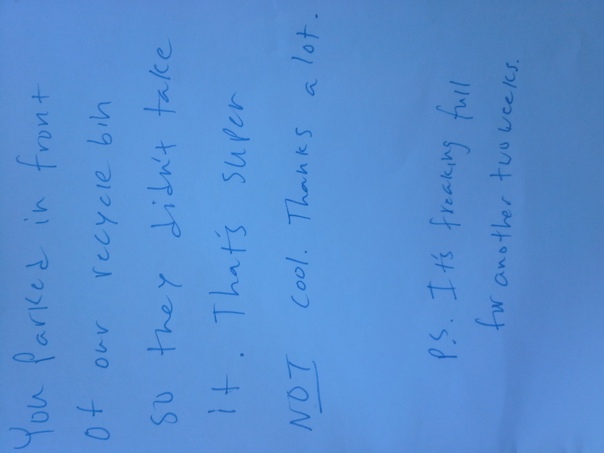 You parked in front
of our recycle bin
so they didn't take
it. That's super
NOT cool. Thanks a lot.
P.S. It's freaking full
for another two weeks.